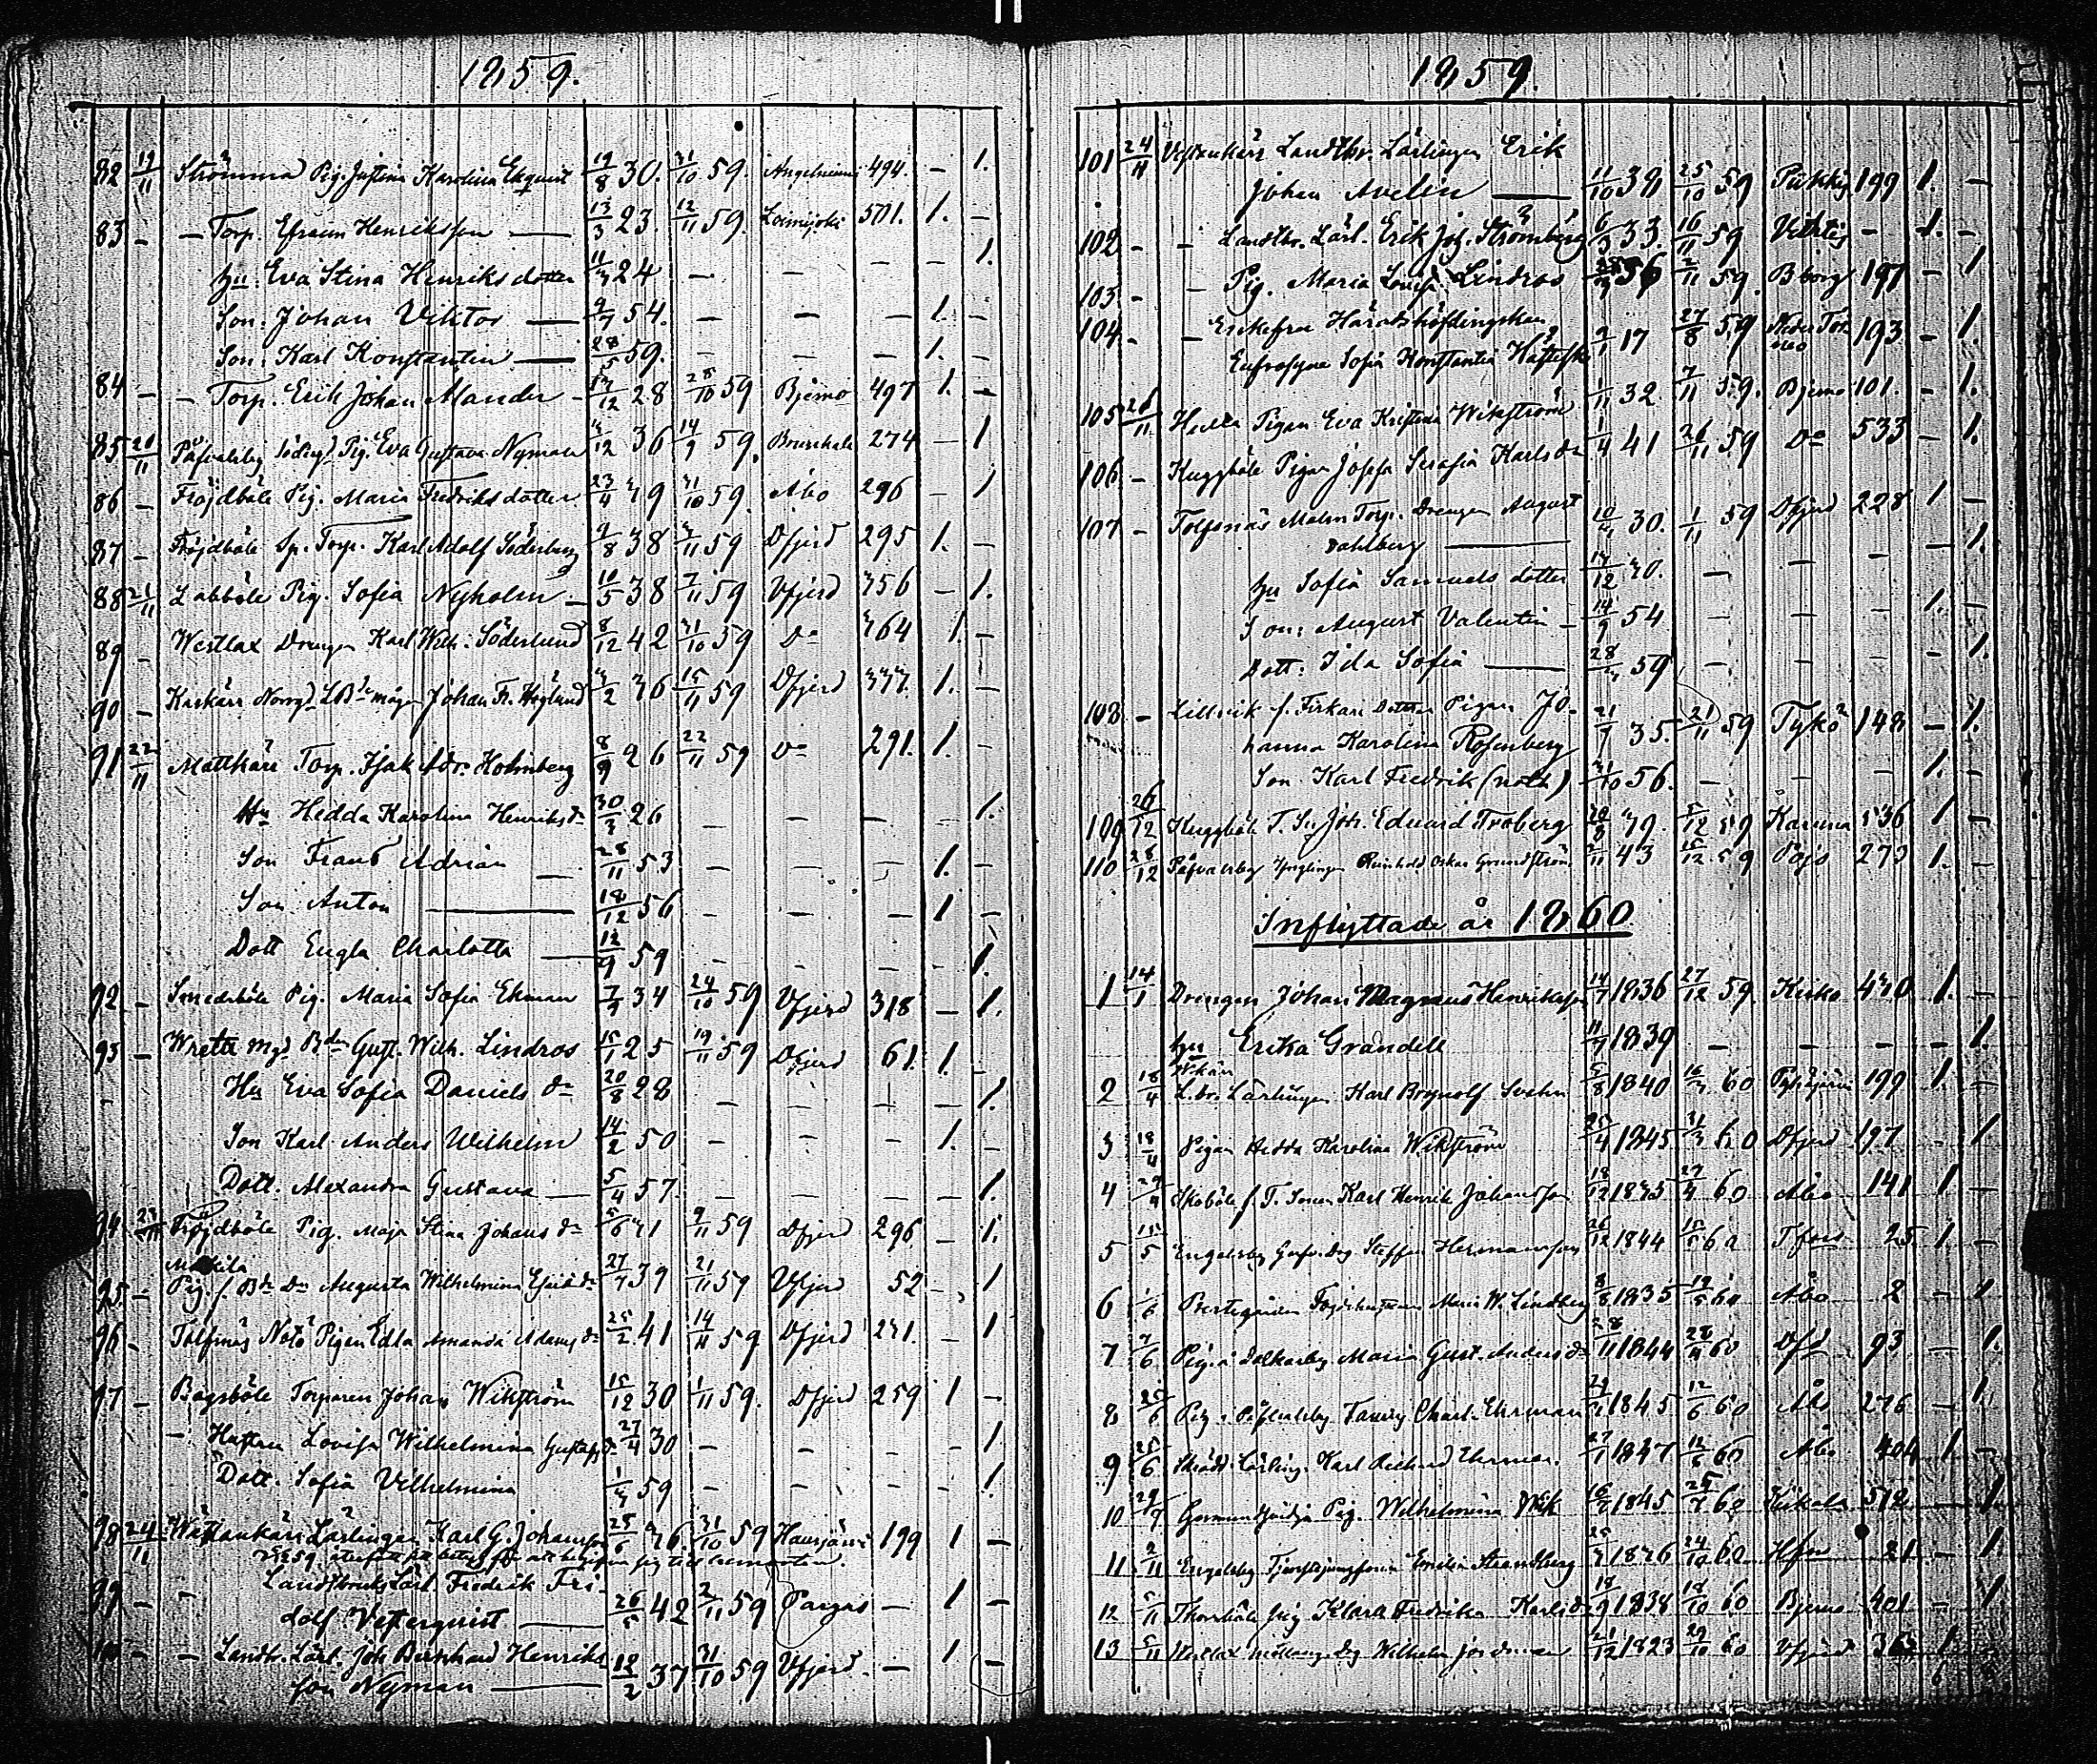 1859.
82 19/11 Strömma Pig. Justina Karolina Ekqvist 19/8 30. 31/10 59. Angelniemi 494. — 1.
83 — — Torp. Efraim Henriksson — 13/3 23 12/11 59. Loimijoki 501. 1. —
Hu: Eva Stina Henriksdotter 24 — — — — 1.
Son: Johan Viktor — 54. — — — 1. —
Son: Karl Konstantin — 28/5 59. — — — 1. —
84 — — Torp. Erik Johan Mander — 12 28 28/10 59 Bjerno 497 1. —
85 20/11 Påfvalsby Pig. Eva Gustava Nyman 12 36 14/9 59. 274 — 1
86 — Fröjdböle Pig. Maria Fredriksdotter 23/4 39 31/10 59. Åbo 296 — 1
87 — Fröjdböle Sp. Torp. Karl Adolf Söderberg 9/8 38 11 59 Dfjerd 295 1. —
88 21/11 Labböle Pig. Sofia Nyholm — 10/5 38 7/11 59 Vfjerd 356 — 1.
89 — Westlax Drengen Karl Wilh: Söderlund 8/12 42 31/10 59 Do 364 1. —
90 — Kärkärr Norrgd Johan Fr. Höglund 2 36 15/11 59 Dfjerd 333. 1. —
91 22/11 Mattkärr Torp. Isak Adr. Holmberg 8/9 26 22/11 59 Do 291. 1. —
Hu Hedda Karolina Henriksdr 30/3 26 — — — — 1.
Son Frans Adrian — 28/11 53 — — — 1. —
Son Anton — 18/12 56 — — — 1 —
Dott Engla Charlotta — 12/9 59 — — — — 1.
92 — Smedsböle Pig. Maria Sofia Ekman 7/9 34 24/10 59 Vfjerd 318 — 1.
93 — Wreta Bdn Gust. Wilh. Lindros 15/1 25 19/11 59 Dfjerd 61. 1. —
Hu Eva Sofia Daniels dr 20/8 28 — — — — 1.
Son Karl Anders Wilhelm 14/2 50 — — — 1. —
Dott. Alexandra Gustava — 5/4 57 — — — — 1.
94 23/11 Fröjdböle Pig. Maja Stina Johans dr 5/6 31 9/11 59 Dfjerd 296 — 1.
95. — Pig. f. Bdr Dr Augusta Wilhelmina 39 21/11 59 Vfjerd 52 — 1
96 — Tolfsnäs Nötö Pigan Edla Amanda Adams dr 25/2 41 14/11 59 Dfjerd 231. — 1
97 — Bogsböle Torparen Johan Wikström 15/12 30 1/11 59. Dfjerd 259 1 —
— Hustru Lovisa Wilhelmina Gustafs dr 27/4 30 — — — — 1
Dott. Sofia Vilhelmina 59 — — — — 1.
98 24/11 Lärlingen Karl G. Johansson 25/6 36. 31/10 59 Hausjärvi 199 1 —
99 — — Landtbruks Lärl. Fredrik Fri-
dolf Vesterquist — 26/5 42 2/11 59 Pargas — 1 —
100 — — Landtb. Lärl. Joh Bernhard Henriks-
son Nyman — 12/2 37 31/10 59 Vfjerd. — 1 —
1859.
101 24/11 Landtbr. Lärlingen Erik
Johan Avelin — 11/10 39 25/10 59 199 1. —
102 — — Landtbr. Lärl. Erik Joh. Strömberg 6/3 33. 16/11 59 — 1. —
103 — — Pig. Maria Lovisa Lindros 36 2/11 59. Bborg 197 — 1
104 — — Enkefru Häradshöfdingskan
Eufrosyne Sofia Konstantia 17 27/8 59 193 — 1.
105 26/11 Pigan Eva Kristina Wikström 1/11 32 7/11 59. Bjerno 101. — 1.
106 — Kuggböle Pigan Josefa Serafia Karlsdr 1/4 41 26/11 59 Do 533 — 1.
107 — Tolfsnäs Malm Torp. Drengen August
Dahlberg — 10 30. 1/11 59 Dfjerd 228 1. —
Hu Sofia Samuels dotter 12 30. — — — — 1.
Son: August Valentin — 14/9 54 — — — 1. —
Dott: Ida Sofia — 28 59 — — — — 1.
108 — Lillvik Dotter Pigan Jo-
hanna Karolina Rosenberg 21/7 35. 21/11 59 Tykö 148 — 1.
Son Karl Fredrik (noth) 31/10 56. — — — 1. —
109 26/12 Kuggböle T. Sn Joh. Eduard Froberg 20/8 39. 5/12 59 Karuna 536 1 —
110 28/12 Påfvalsby Ynglingen Reinhold Oskar Grundström 11 43 15/12 59 273 1. —
Inflyttade år 1860
1 14/1 Drengen Johan Magnus Henriksson 14/7 1836 27/12 59. Kisko 430 1. —
Hu Erika Grandell 11/7 1839 — — — — 1.
2 18/4 L.br. Lärlingen Karl Brynolf 5/8 1840 60 Pyhäjärvi 199 1. —
3 18/4 Pigan Hedda Karolina Wikström 25/4 1845 31/3 60 Dfjerd 197 — 1.
4 f. T. Sonen Karl Henrik Johansson 18/12 1833 27/4 60 Åbo 141 1 —
5 15/5 Engelsby Drg Steffan Hermansson 26/12 1844 60 25. 1. —
6 Prestgården Maria W. Lindberg 8/8 1835 19/5 60 Åbo 2 — 1
7 7/6 Pig. i Dalkarby Maria Gust. Anders dr 1844 60 Dfd 93 — 1.
8 25/6 Pig. i Påfvalsby Fanny Charl. Ehrman 1845 12/6 60 Åbo 276 — 1.
9 25/6 Skrädd. Lärling. Karl Richard Ehrman. 27/1 1847 12/6 60 Åbo 404 1. —
10 29/7 Pig. Wilhelmina 1845 60 Kiikala 512 — 1
11 2/11 Engelsby Emelia Strandberg 1826 24/10 60 Hfors 21 — 1
12 5/11 Pig Klara Fredrika Karlsdr 18/9 1838 18/10 60 Bjerno 401 — 1
13 5/11 Westlax Drg Wilhelm 21/12 1823 29/10 60 Vfjerd 1 —